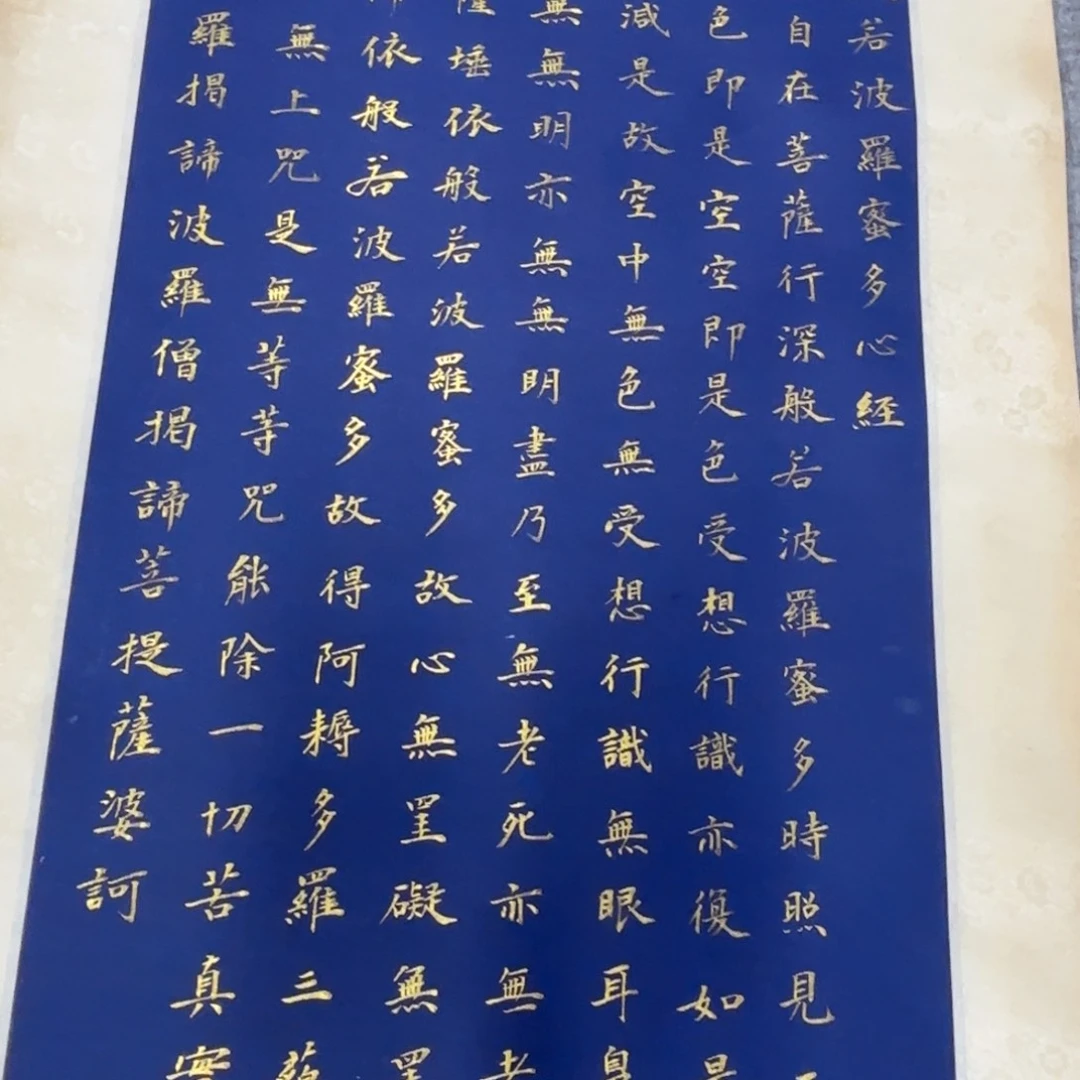 若波羅蜜多心経
自在菩薩行深般若波羅蜜多時照見
色即是空空即是色受想行識亦復如是
減是故空中無色無受想行識無眼耳
無無明亦無無明盡乃至無老死亦無老
薩埵依般若波羅蜜多故心無罣礙無罣
依般若波羅蜜多故得阿耨多羅三藐
無上咒是無等等咒能除一切苦真實
羅揭諦波羅僧揭諦菩提薩婆訶